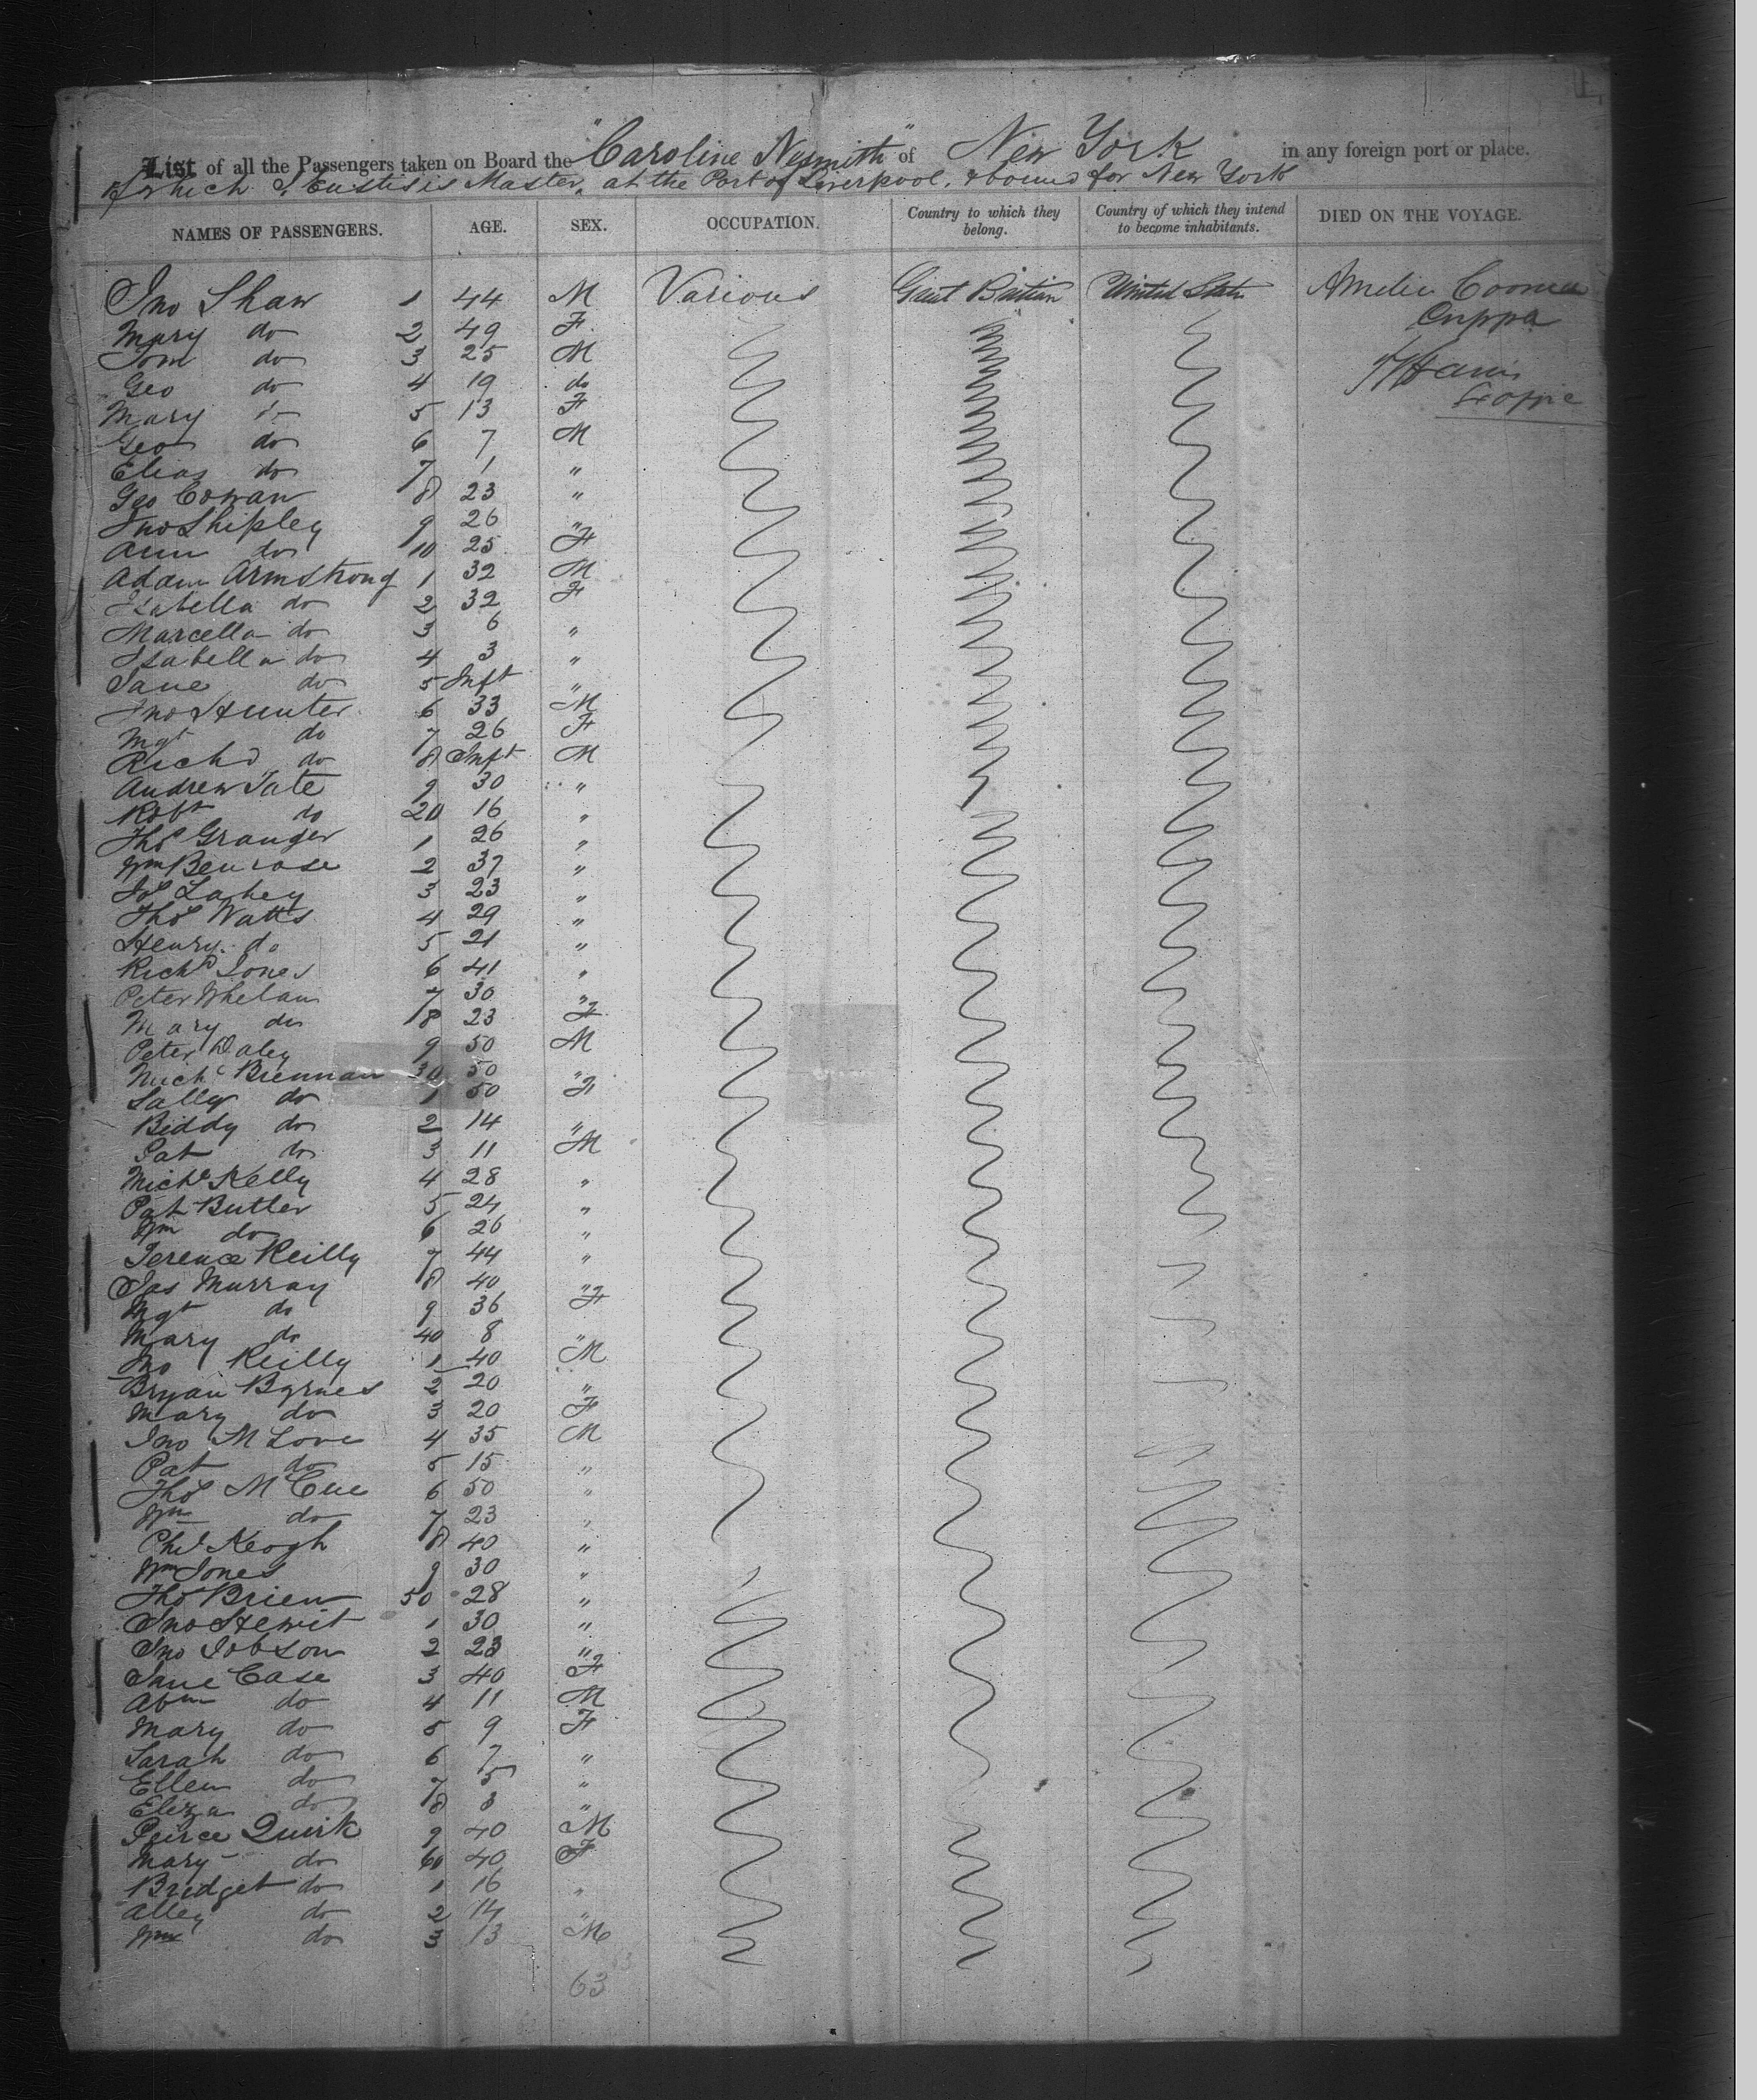 List of all the Passengers taken on Board the "Caroline Nesmith" of New York in any foreign port or place.
of which is Master, at the Port of Liverpool, & bound for New York
NAMES OF PASSENGERS. AGE. SEX. OCCUPATION. Country to which they belong. Country of which they intend to become inhabitants. DIED ON THE VOYAGE.
Jno Shaw 1 44 M Various Great Britian United States Amelia
Mary do 2 49 F
Tom do 3 25 M
Geo do 4 19 do
Mary do 5 13 F
Geo do 6 7 M
Elias do 7 1 "
Geo Cowan 8 23 "
Jno Shipley 9 26 "
Ann do 10 25 F
Adam Armstrong 1 32 M
Isabella do 2 32 F
Marcella do 3 6 "
Isabella do 4 3 "
Jane do 5 Inft "
Jno Hunter 6 33 M
Mgt do 7 26 F
Richd do 8 Inft M
Andrew Tate 9 30 "
Robt do 20 16 "
Thos Granger 1 26 "
Wm Benrose 2 37 "
Jos Lahey 3 23 "
Thos Watts 4 29 "
Henry do 5 21 "
Richd Jones 6 41 "
Peter Whelan 7 30 "
Mary do 8 23 F
Peter Daley 9 50 M
Michl Brennan 30 50 "
Sally do 1 50 F
Biddy do 2 14 "
Pat do 3 11 M
Michl Kelly 4 28 "
Pat Butler 5 24 "
Wm do 6 26 "
Terence Reilly 7 44 "
Jas Murray 8 40 "
Mgt do 9 36 F
Mary do 40 8 "
Jno Reilly 1 40 M
Bryan Byrnes 2 20 "
Mary do 3 20 F
Jno McLove 4 35 M
Pat do 5 15 "
Thos McCue 6 50 "
Wm do 7 23 "
Chs Keogh 8 40 "
Wm Jones 9 30 "
Thos Brien 50 28 "
Jno Hewit 1 30 "
Jno Jobson 2 23 "
Jane Case 3 40 F
Abm do 4 11 M
Mary do 5 9 F
Sarah do 6 7 "
Ellen do 7 5 "
Eliza do 8 3 "
Peirce Quirk 9 40 M
Mary do 60 40 F
Bridget do 1 16 "
Alley do 2 14 "
Wm do 3 13 M
63